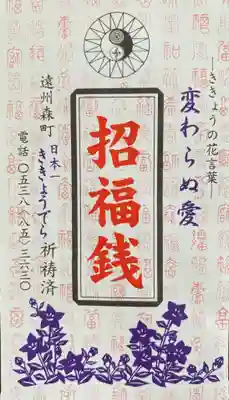 ―ききょうの花言葉―
変わらぬ愛
招福銭
遠州森町
日本一
ききょうでら祈祷済
電話〇五三八(八五)三六三〇